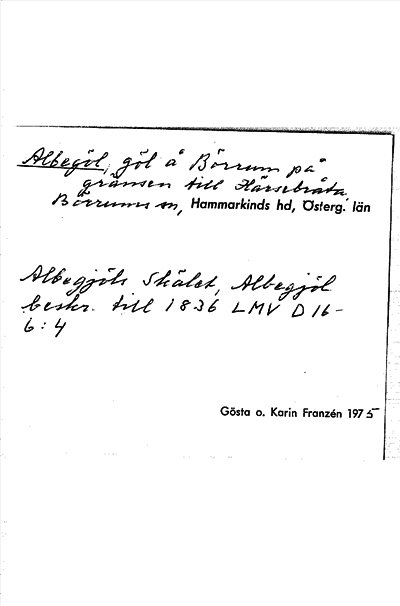 Albegöl, göl å Börrum på
gränsen till Härsebråta,
Börrums sn, Hammarkinds hd, Österg. län
Albegjöls Skälet, Albegjöl
beskr. till 1836 LMV D 16-
6:4
Gösta o. Karin Franzén 1975